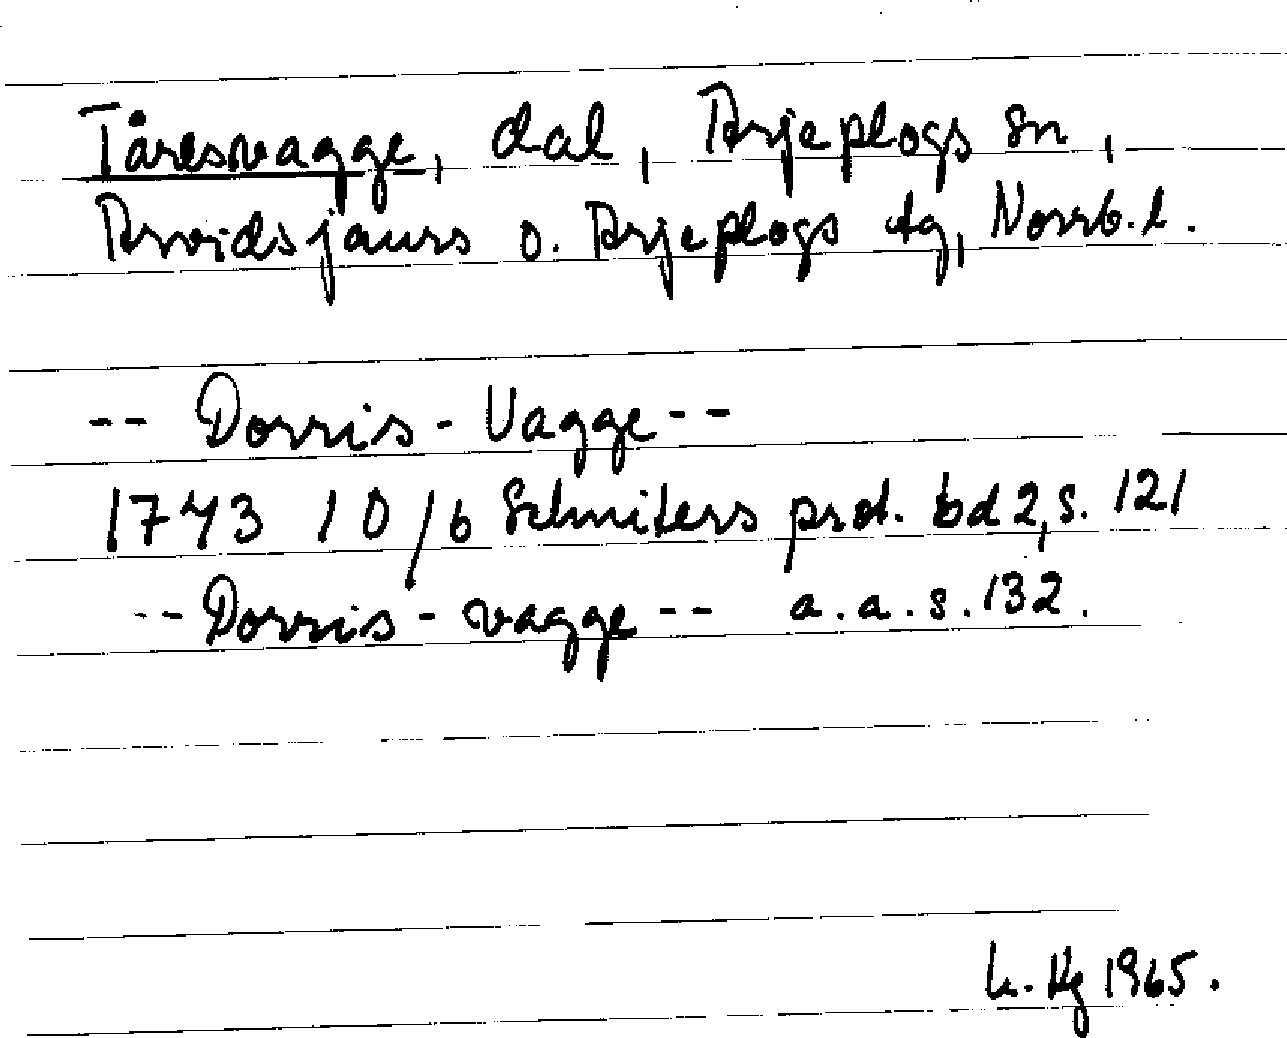 Tåresvagge, dal, Arjeplogs sn,
Arvidsjaurs o. Arjeplogs tg, Norrb.l.
-- Dorris-Vagge--
1743 10/6 Schnitlers prot. bd 2, s. 121
-- Dorris-vagge -- a.a.s.132.
1965.